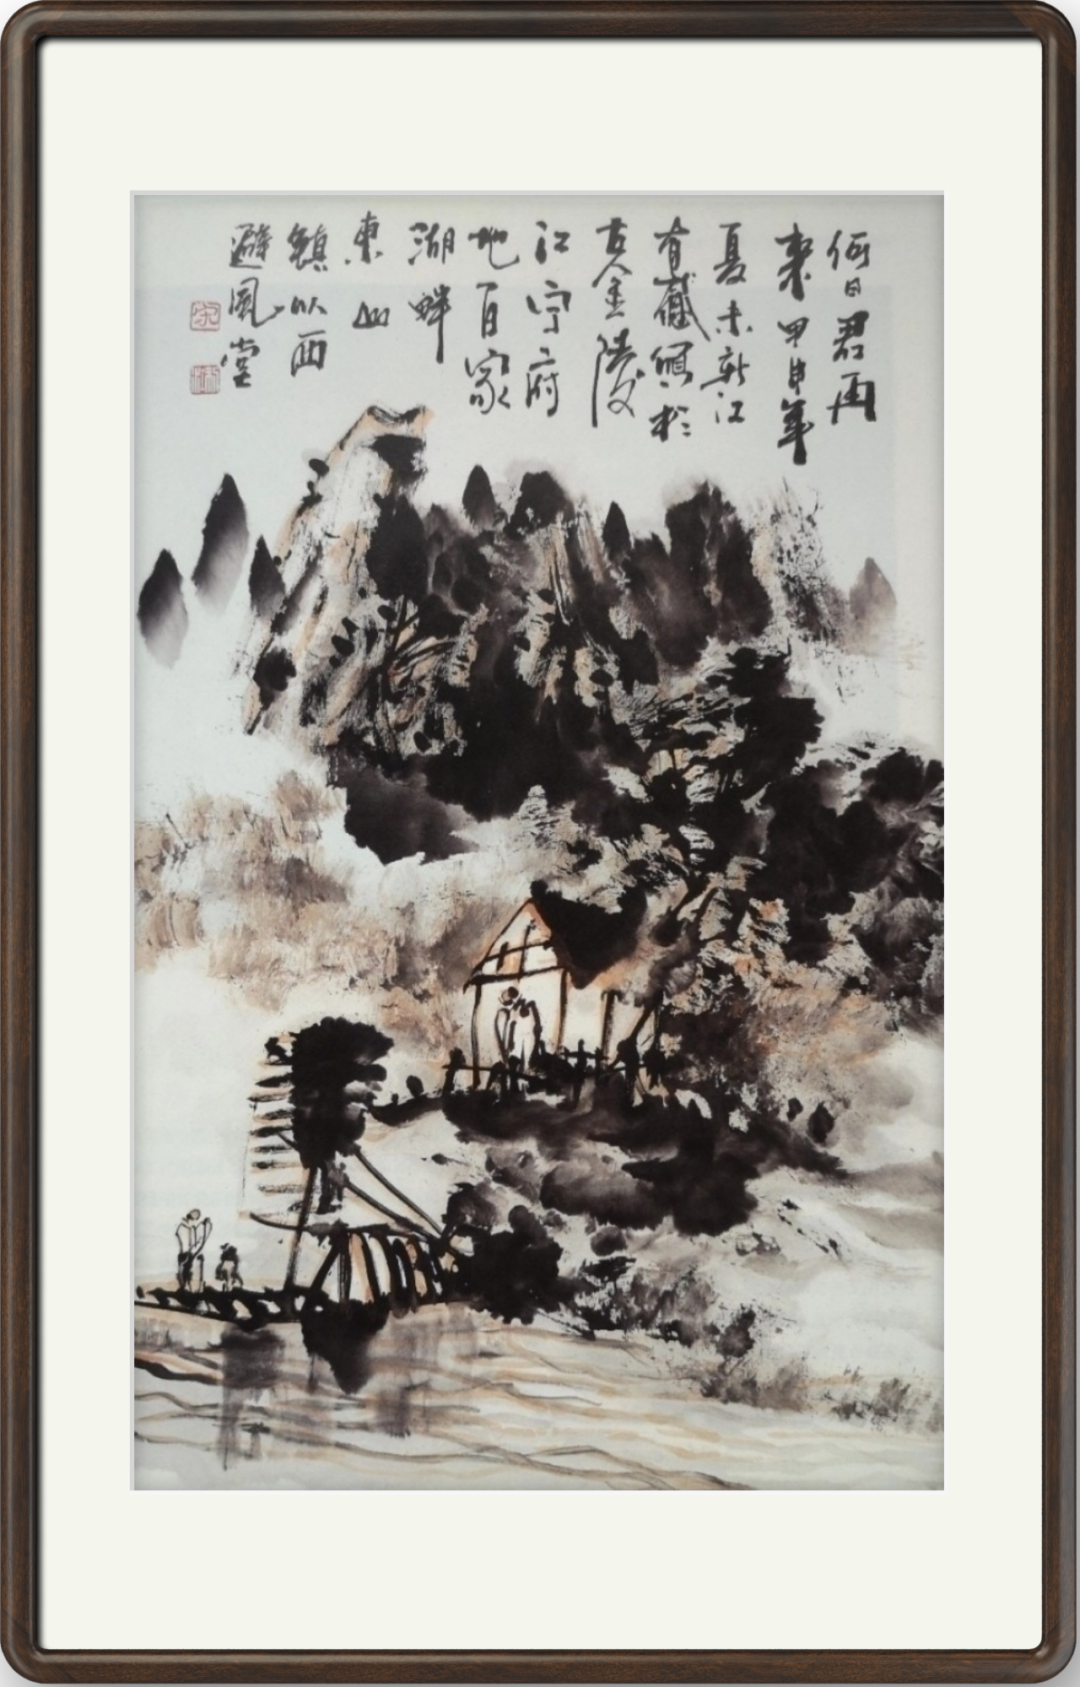 何日君再
来甲申年
夏末新江
有感写于
古金陵
江宁府
地百家
湖畔
東山
鎮以西
避風堂